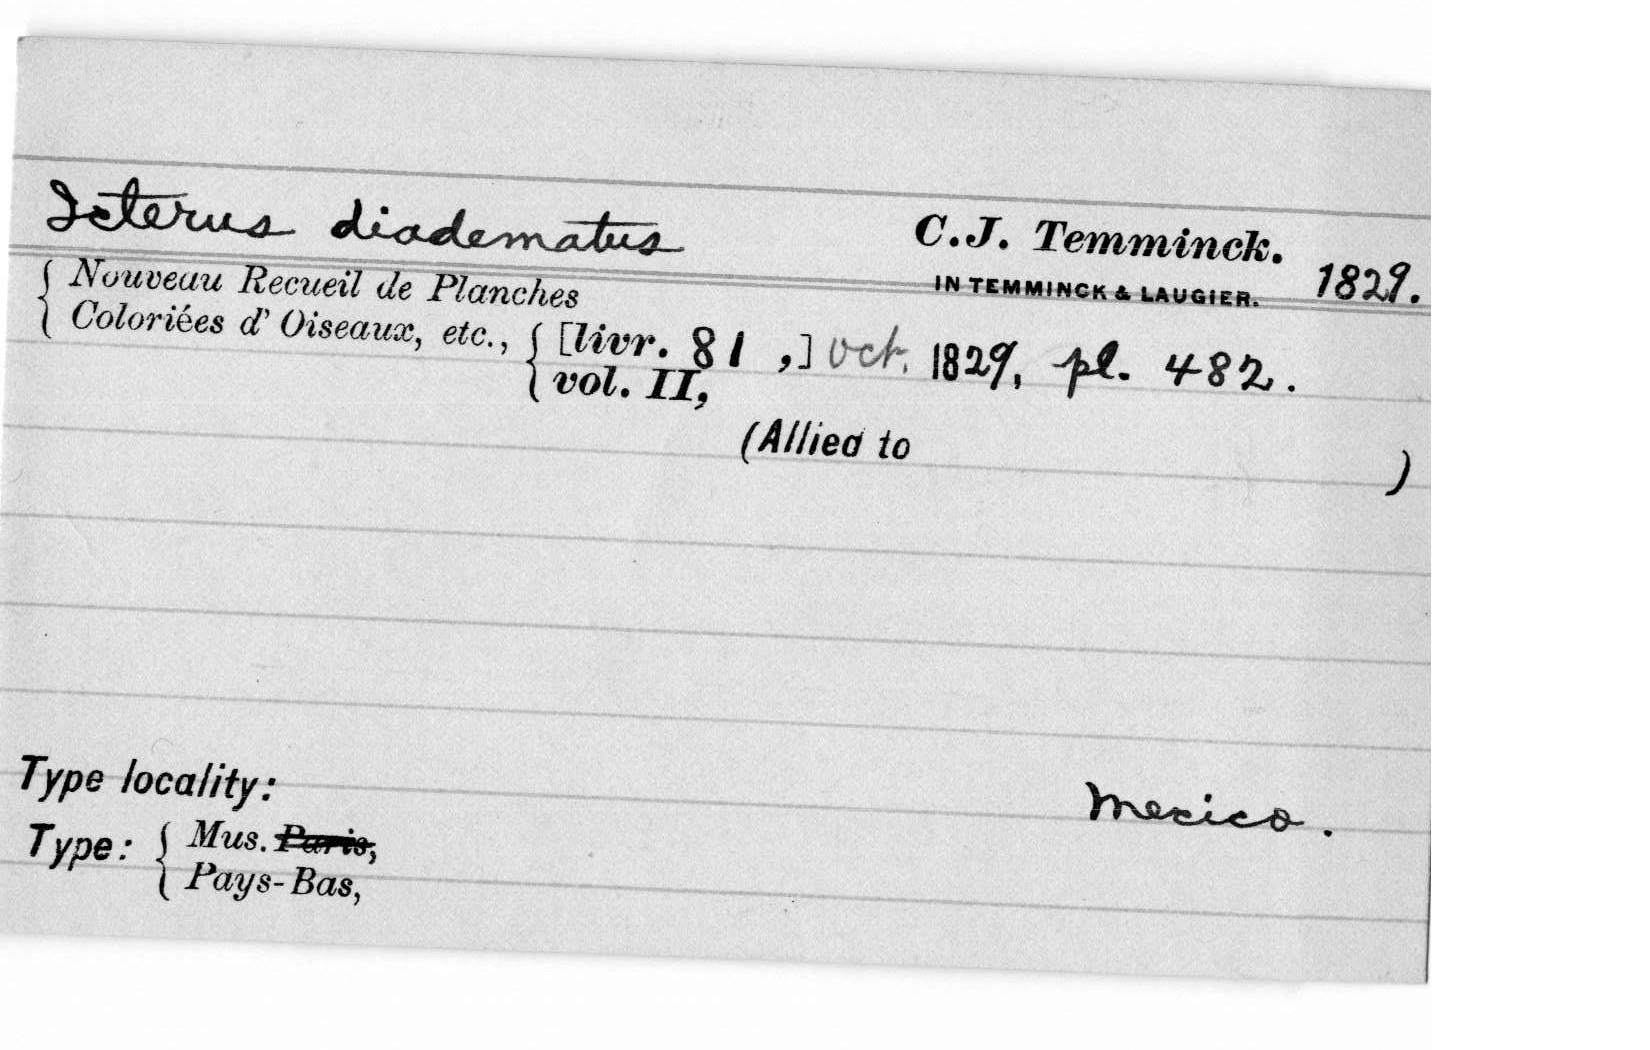 Icterus diadematus C.J. Temminck.
IN TEMMINCK & LAUGIER. 1829.
{ Nouveau Recueil de Planches
Coloriées d' Oiseaux, etc., { [livr. 81 ,] oct. 1829, pl. 482.
vol. II,
(Allied to )
Type locality: Mexico.
Type: { Mus. Paris,
Pays-Bas,